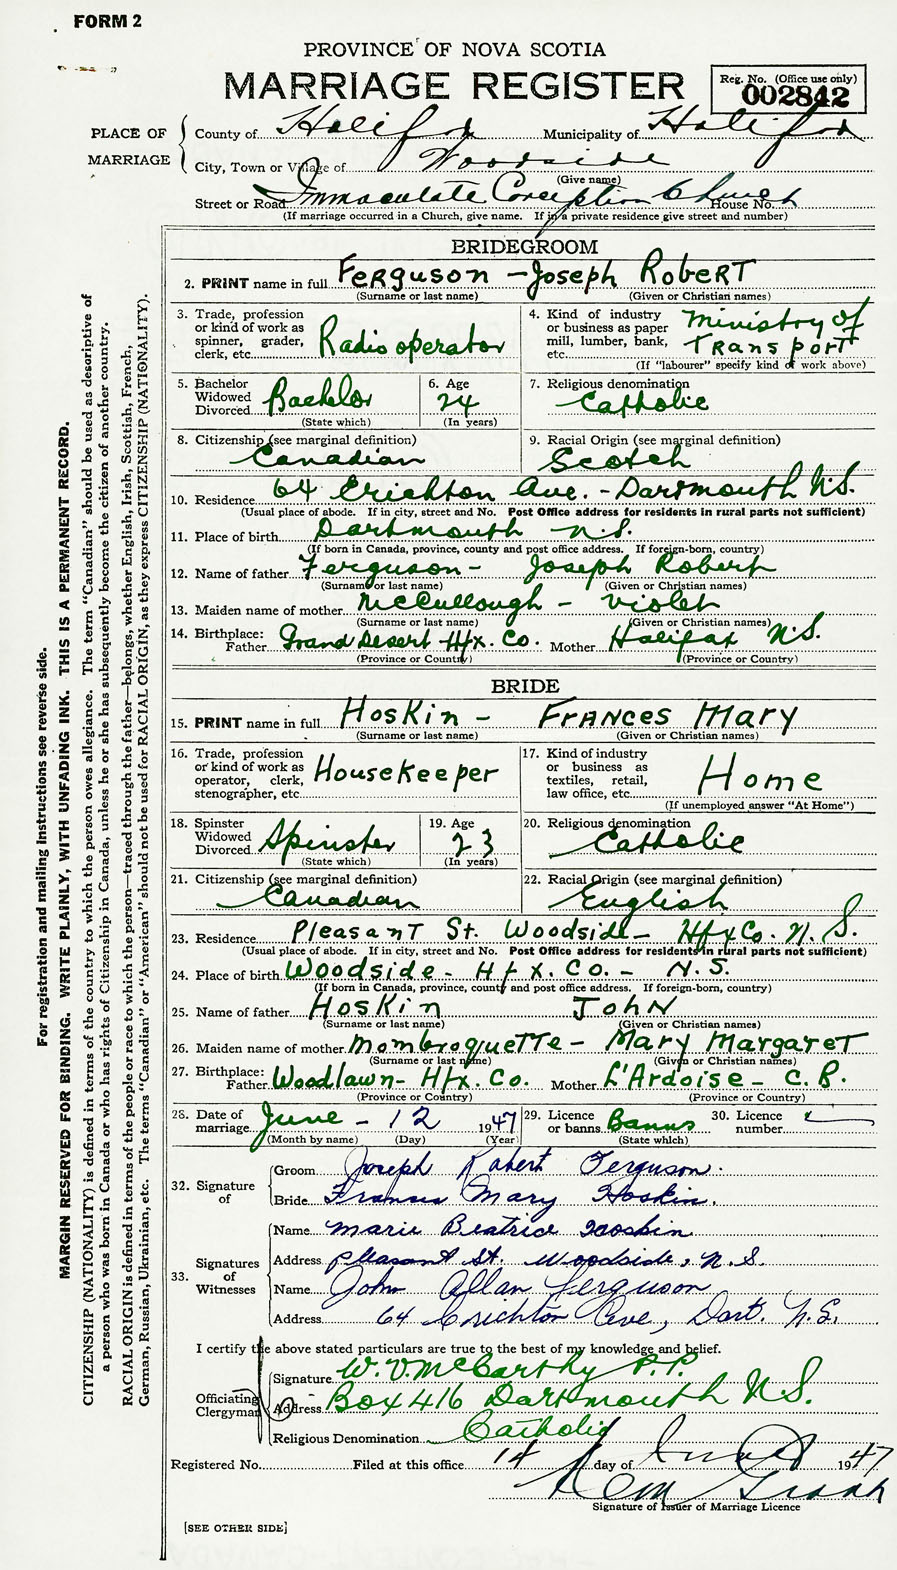 FORM 2
PROVINCE OF NOVA SCOTIA
MARRIAGE REGISTER
Reg. No. (Office use only)
002842
PLACE OF MARRIAGE
County of Halifax Municipality of Halifax
City, Town or Village of Woodside
(Give name)
Street or Road Immaculate Conception Church House No.
(If marriage occurred in a Church, give name. If in a private residence give street and number)
BRIDEGROOM
2. PRINT name in full Ferguson - Joseph Robert
(Surname or last name) (Given or Christian names)
3. Trade, profession or kind of work as spinner, grader, clerk, etc. Radio operator
4. Kind of industry or business as paper mill, lumber, bank, etc. Ministry of Transport
(If "labourer" specify kind of work above)
5. Bachelor Widowed Divorced Bachelor
(State which)
6. Age 24
(In years)
7. Religious denomination Catholic
8. Citizenship (see marginal definition) Canadian
9. Racial Origin (see marginal definition) Scotch
10. Residence 64 Crichton Ave. - Dartmouth N.S.
(Usual place of abode. If in city, street and No. Post Office address for residents in rural parts not sufficient)
11. Place of birth Dartmouth N.S.
(If born in Canada, province, county and post office address. If foreign-born, country)
12. Name of father Ferguson - Joseph Robert
(Surname or last name) (Given or Christian names)
13. Maiden name of mother McCullough - Violet
(Surname or last name) (Given or Christian names)
14. Birthplace: Father Grand Desert Hfx. Co. Mother Halifax N.S.
(Province or Country) (Province or Country)
BRIDE
15. PRINT name in full Hoskin - Frances Mary
(Surname or last name) (Given or Christian names)
16. Trade, profession or kind of work as operator, clerk, stenographer, etc. Housekeeper
17. Kind of industry or business as textiles, retail, law office, etc. Home
(If unemployed answer "At Home")
18. Spinster Widowed Divorced Spinster
(State which)
19. Age 23
(In years)
20. Religious denomination Catholic
21. Citizenship (see marginal definition) Canadian
22. Racial Origin (see marginal definition) English
23. Residence Pleasant St. Woodside - Hfx Co. N.S.
(Usual place of abode. If in city, street and No. Post Office address for residents in rural parts not sufficient)
24. Place of birth Woodside - Hfx. Co. - N.S.
(If born in Canada, province, county and post office address. If foreign-born, country)
25. Name of father Hoskin John
(Surname or last name) (Given or Christian names)
26. Maiden name of mother Mombroquette - Mary Margaret
(Surname or last name) (Given or Christian names)
27. Birthplace: Father Woodlawn - Hfx. Co. Mother L'Ardoise - C.B.
(Province or Country) (Province or Country)
28. Date of marriage June - 12 1947
(Month by name) (Day) (Year)
29. Licence or banns Banns
(State which)
30. Licence number
32. Signature of
Groom Joseph Robert Ferguson.
Bride Frances Mary Hoskin.
33. Signatures of Witnesses
Name Marie Beatrice Hoskin
Address Pleasant St. Woodside, N.S.
Name John Allan Ferguson
Address 64 Crichton Ave, Dart. N.S.
I certify the above stated particulars are true to the best of my knowledge and belief.
Officiating Clergyman
Signature W. V. McCarthy P.P.
Address Box 416 Dartmouth N.S.
Religious Denomination Catholic
Registered No. Filed at this office 14 day of 1947
Signature of Issuer of Marriage Licence
[SEE OTHER SIDE]
For registration and mailing instructions see reverse side.
MARGIN RESERVED FOR BINDING. WRITE PLAINLY, WITH UNFADING INK. THIS IS A PERMANENT RECORD.
CITIZENSHIP (NATIONALITY) is defined in terms of the country to which the person owes allegiance. The term "Canadian" should be used as descriptive of
a person who was born in Canada or who has rights of Citizenship in Canada, unless he or she has subsequently become the citizen of another country.
RACIAL ORIGIN is defined in terms of the people or race to which the person—traced through the father—belongs, whether English, Irish, Scottish, French,
German, Russian, Ukrainian, etc. The terms "Canadian" or "American" should not be used for RACIAL ORIGIN, as they express CITIZENSHIP (NATIONALITY).